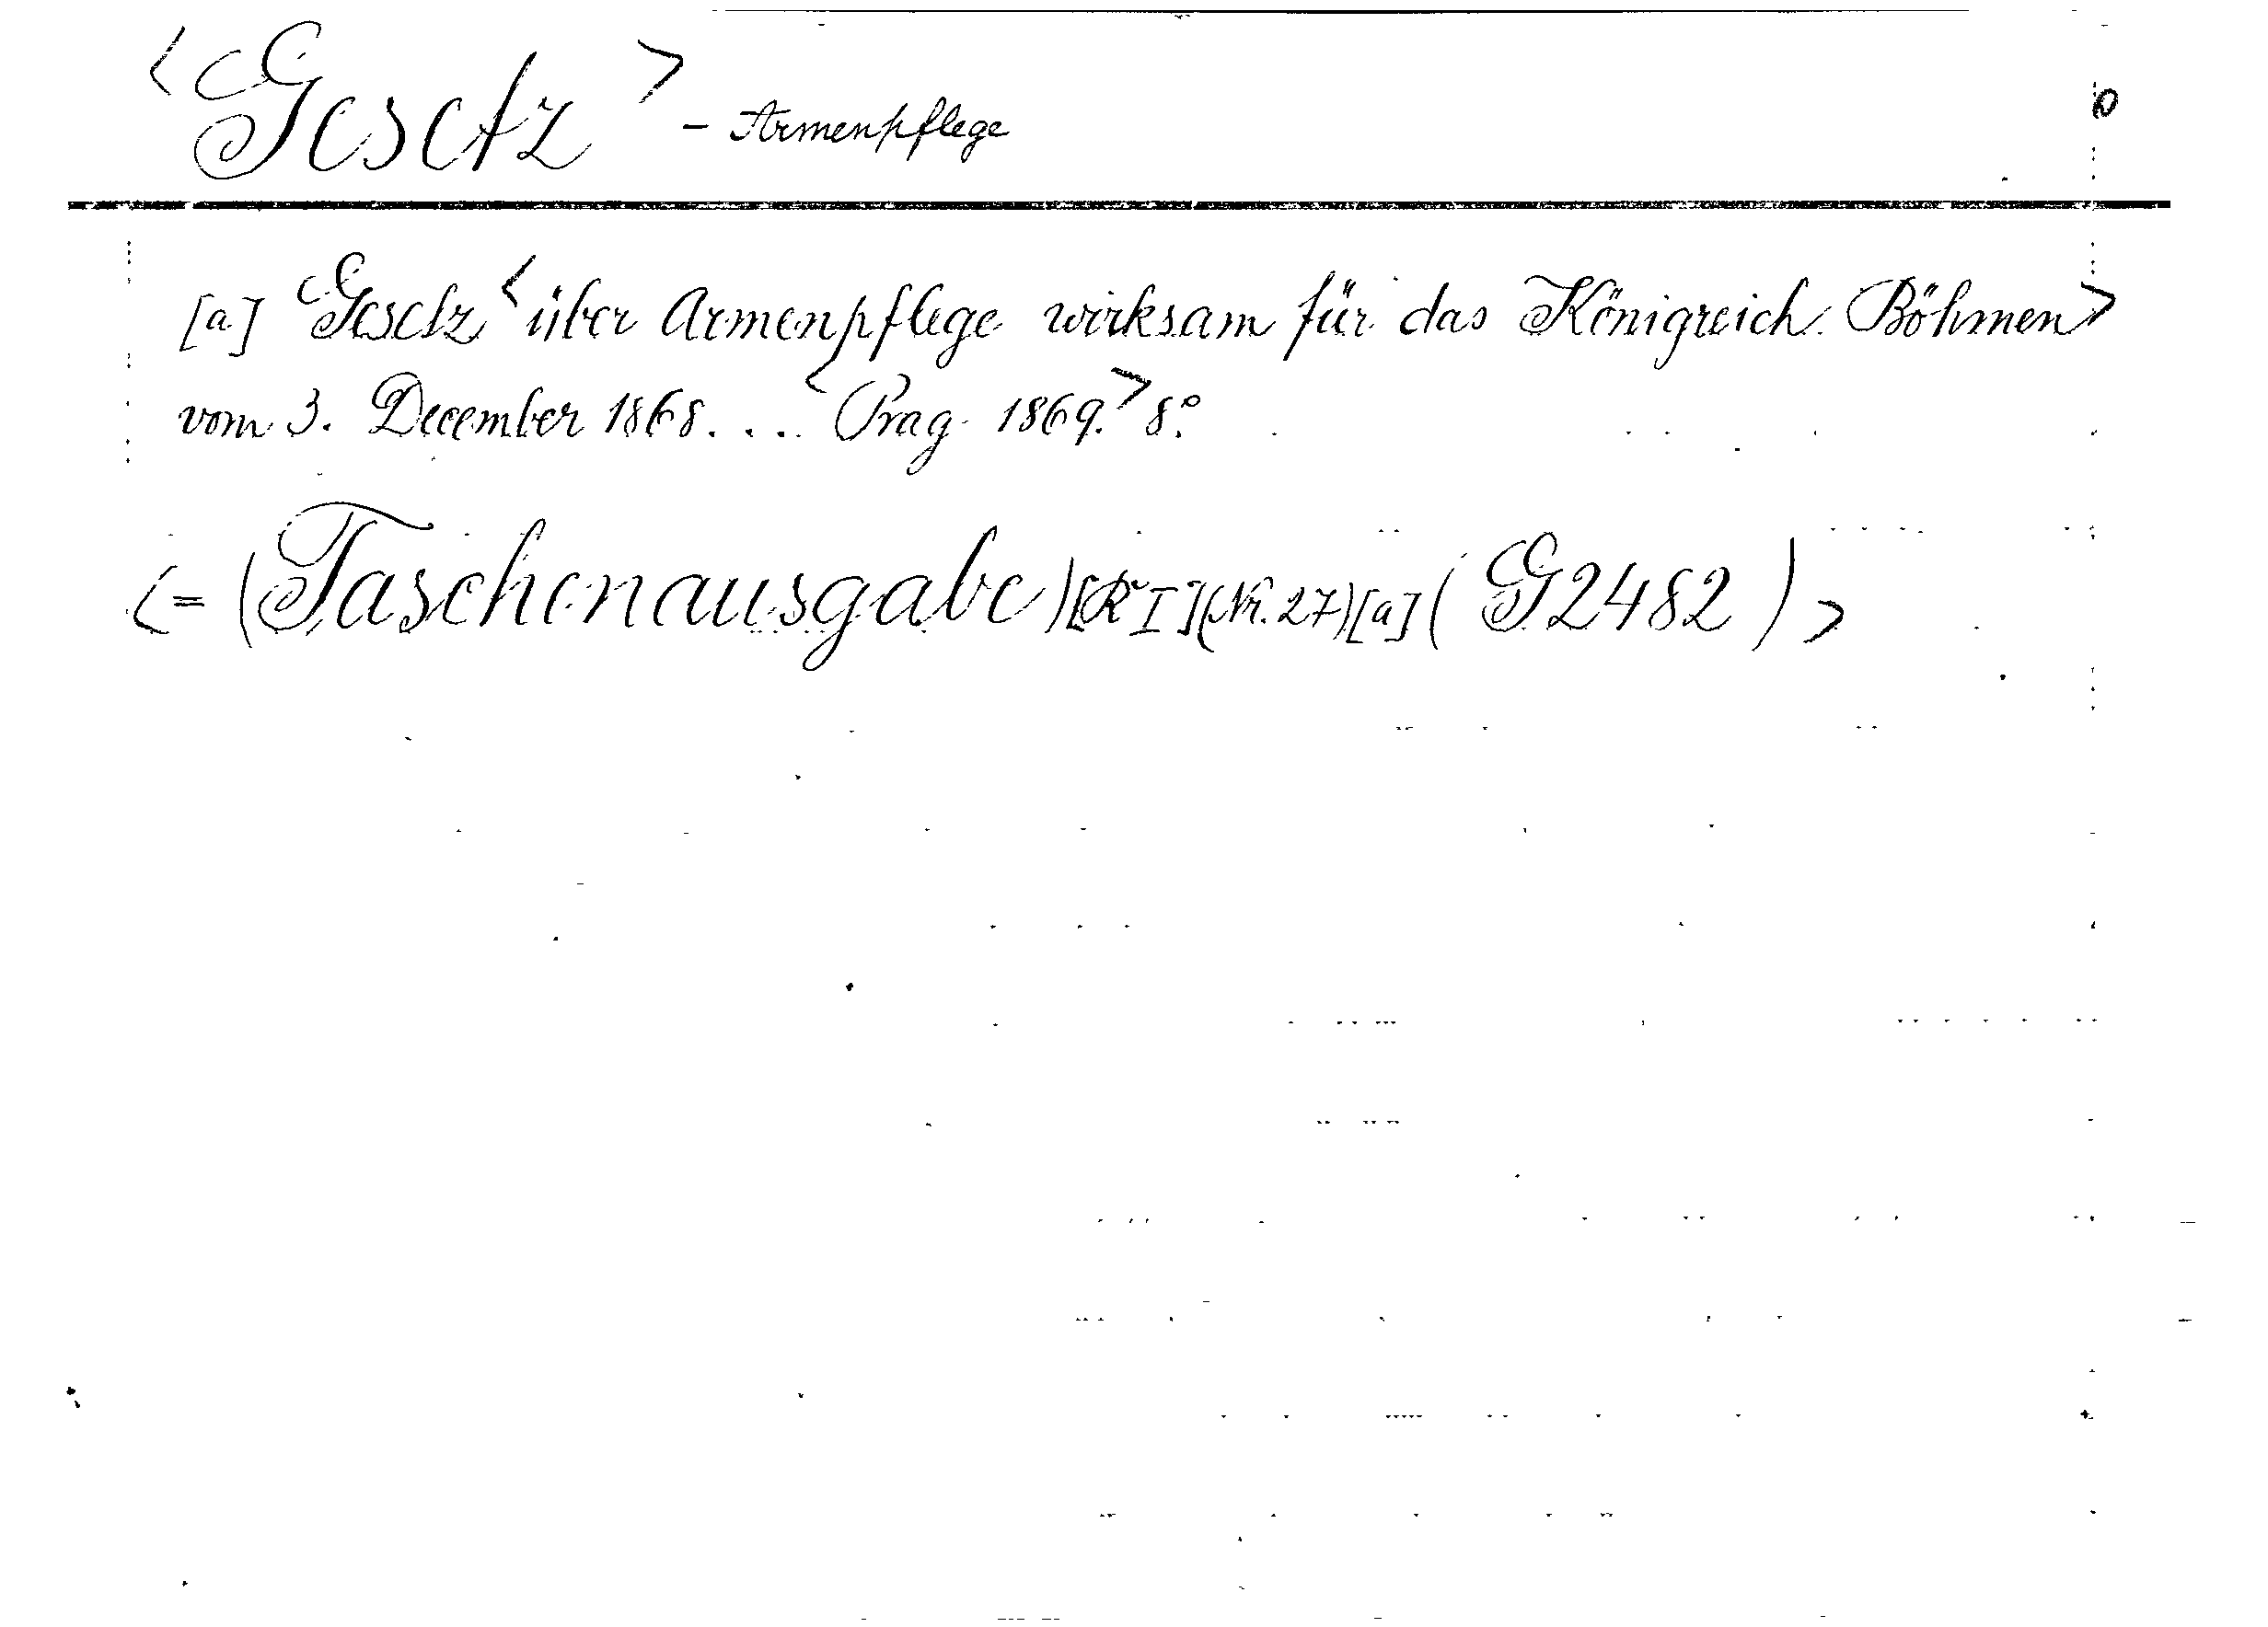 <Gesetz> - Armenpflege
[a] Gesetz <über Armenpflege wirksam für das Königreich Böhmen>
vom 3. December 1868. ... <Prag 1869.> 8.°
<= (Taschenausgabe) [R I] (Nr. 27) [a] (G2482)>